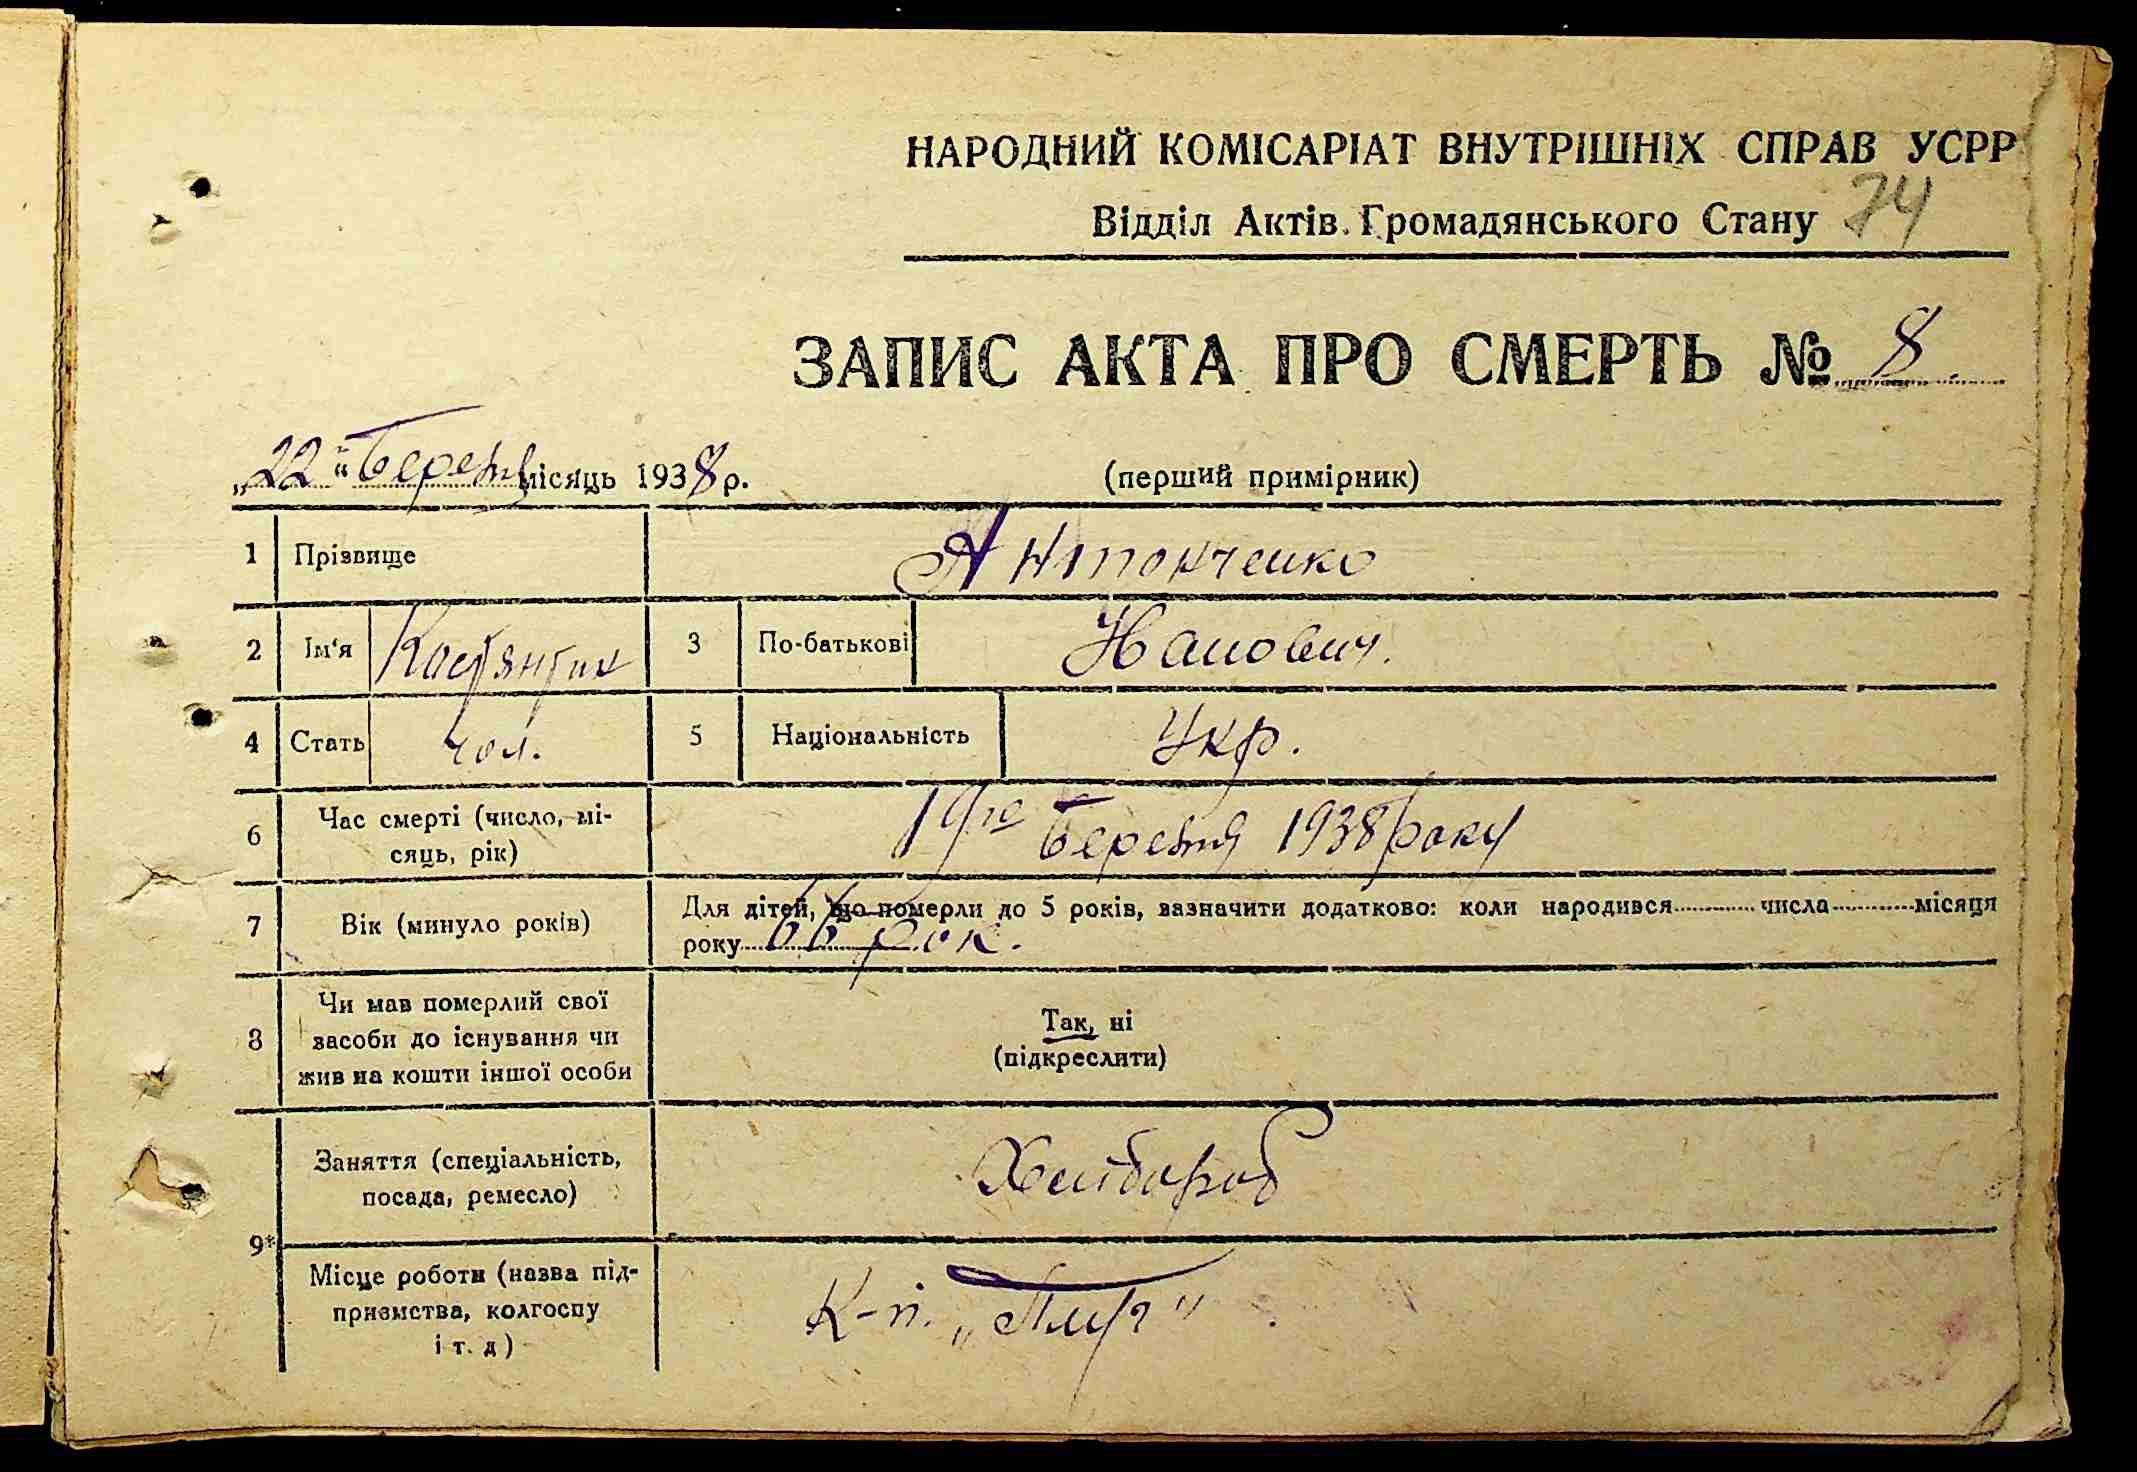 НАРОДНИЙ КОМІСАРІАТ ВНУТРІШНІХ СПРАВ УСРР
Відділ Актів Громадянського Стану 74
ЗАПИС АКТА ПРО СМЕРТЬ № 8
„22“ Березня місяць 1938 р. (перший примірник)
1 Прізвище Антонченко
2 Ім'я Костянтин 3 По-батькові
4 Стать чол. 5 Національність Укр.
6 Час смерті (число, мі-
сяць, рік) 19го Березня 1938 року
7 Вік (минуло років) Для дітей, що померли до 5 років, зазначити додатково: коли народився числа місяця
року 66 рок.
8 Чи мав померлий свої
засоби до існування чи
жив на кошти іншої особи
Так, ні
(підкреслити)
Заняття (спеціальність,
посада, ремесло) Хлібороб
9*
Місце роботи (назва під-
приємства, колгоспу
і т. д) К-п.